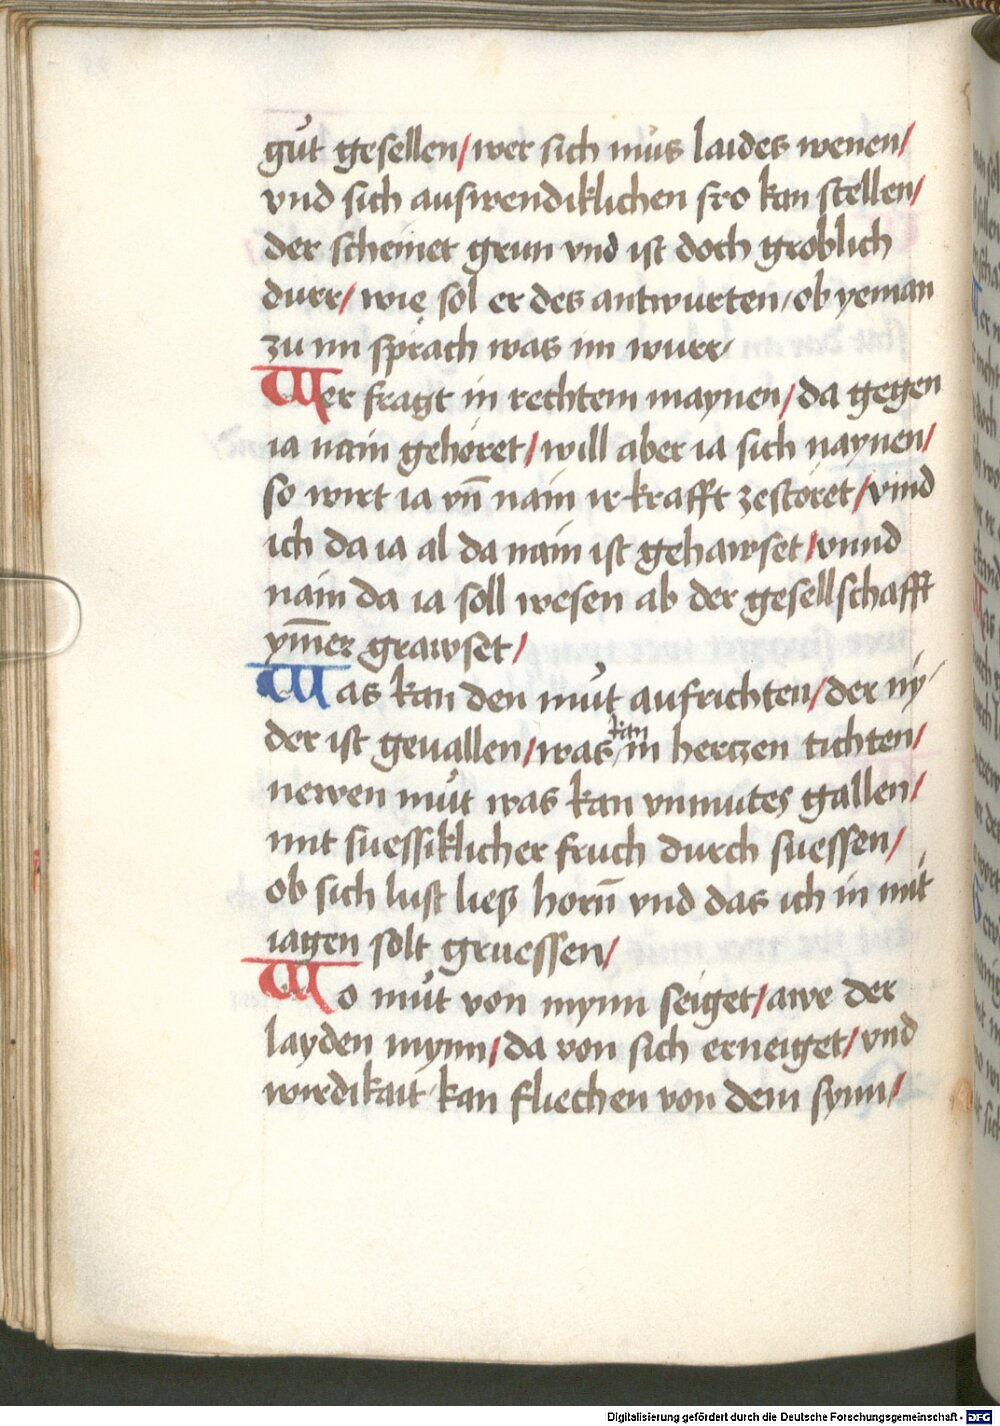 gůt gesellen/wer sich můs laides wenen/
vnd sich auswendiklichen fro kan stellen/
der scheinet grun vnd ist doch groblich
durr/ wie sol er des antwurten/ob yeman
zu im sprach was im wurr
Wer fragt in rechtem maynen/da gegen
ia nain gehöret/will aber ia sich naynen/
so wirt ia vn̄ nain ir krafft zestöret/vind
ich da ia al da nain ist gehawset/vnnd
nain da ia soll wesen ab der gesellschafft
ym̄er grawset/
Was kan den můt aufrichten/der ny
der ist geuallen/was kan in hertzen tichten/
newen můt was kan vnmutes gallen/
mit suessiklicher fruch durch suessen/
ob sich lust liesz horn̄ vnd das ich in mit
iagen solt gruessen/
Wo můt von mynn seiget/awe der
layden mynn/da von sich erneiget/vnd
wirdikait kan fliechen von dem synn/
Digitalisierung gefördert durch die Deutsche Forschungsgemeinschaft - DFG